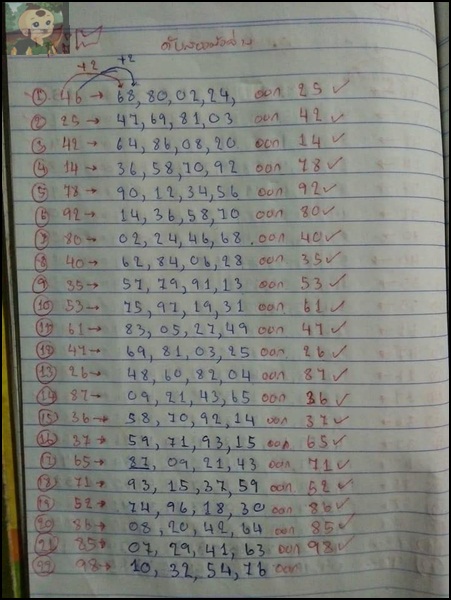 +2 +2
① 46 → 68, 80, 02, 24, ออก 25 ✓
② 25 → 47, 69, 81, 03 ออก 42 ✓
③ 42 → 64, 86, 08, 20 ออก 14 ✓
④ 14 → 36, 58, 70, 92 ออก 78 ✓
⑤ 78 → 90, 12, 34, 56 ออก 92 ✓
⑥ 92 → 14, 36, 58, 70 ออก 80 ✓
⑦ 80 → 02, 24, 46, 68, ออก 40 ✓
⑧ 40 → 62, 84, 06, 28 ออก 35 ✓
⑨ 35 → 57, 79, 91, 13 ออก 53 ✓
⑩ 53 → 75, 97, 19, 31 ออก 61 ✓
⑪ 61 → 83, 05, 27, 49 ออก 47 ✓
⑫ 47 → 69, 81, 03, 25 ออก 26 ✓
⑬ 26 → 48, 60, 82, 04 ออก 87 ✓
⑭ 87 → 09, 21, 43, 65 ออก 36 ✓
⑮ 36 → 58, 70, 92, 14 ออก 37 ✓
⑯ 37 → 59, 71, 93, 15 ออก 65 ✓
⑰ 65 → 87, 09, 21, 43 ออก 71 ✓
⑱ 71 → 93, 15, 37, 59 ออก 52 ✓
⑲ 52 → 74, 96, 18, 30 ออก 86 ✓
⑳ 86 → 08, 20, 42, 64 ออก 85 ✓
㉑ 85 → 07, 29, 41, 63 ออก 98 ✓
㉒ 98 → 10, 32, 54, 76 ออก